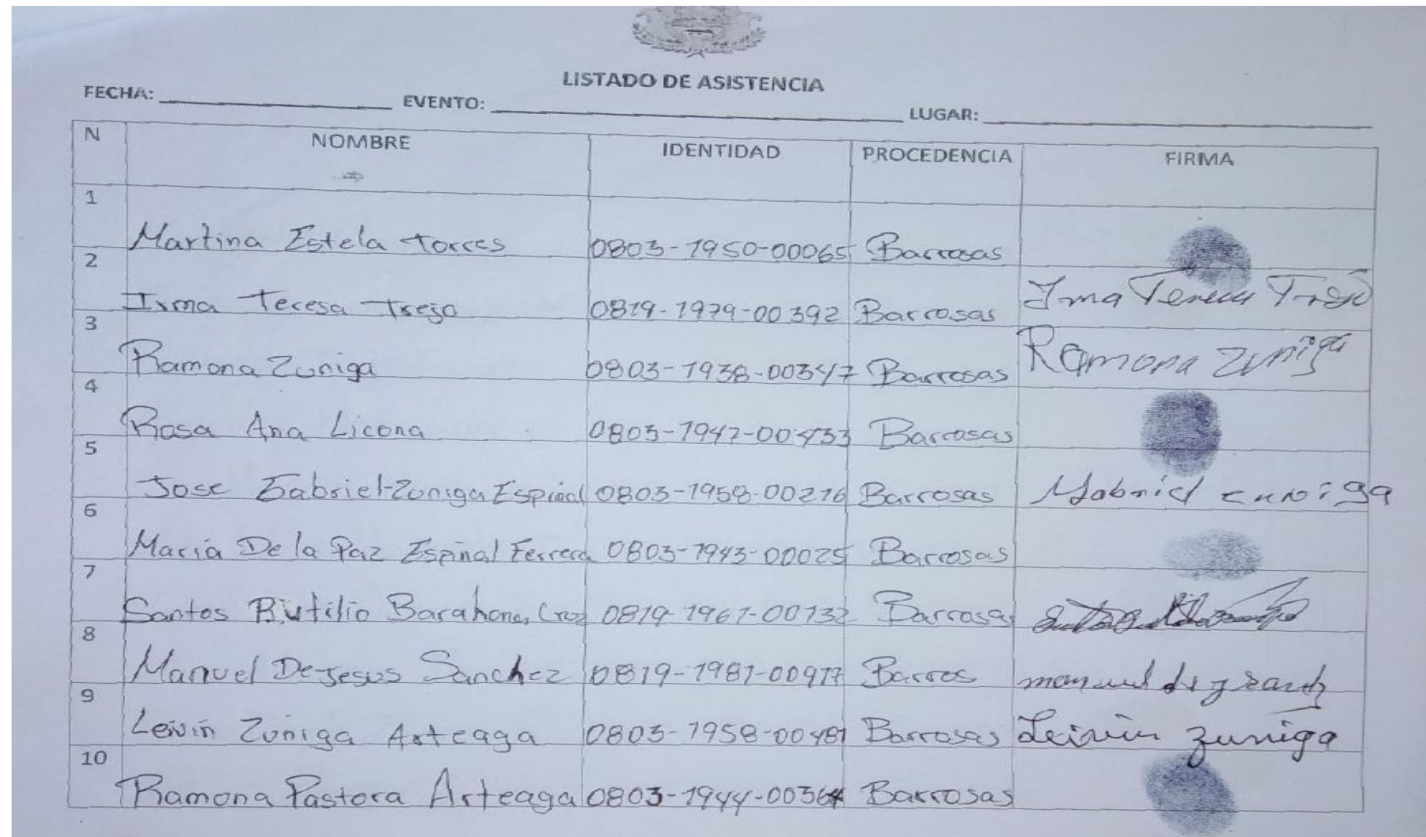 LISTADO DE ASISTENCIA
FECHA: EVENTO: LUGAR:
N NOMBRE IDENTIDAD PROCEDENCIA FIRMA
1 Martina Estela Torres 0803-1950-00065 Barrosas
2 Irma Teresa Trejo 0819-1979-00392 Barrosas Irma Teresa Trejo
3 Ramona Zuniga 0803-1938-00347 Barrosas Ramona Zuniga
4 Rosa Ana Licona 0803-1947-00433 Barrosas
5 Jose Gabriel Zuniga Espinal 0803-1958-00216 Barrosas
6 Maria De la Paz Espinal Ferrera 0803-1943-00025 Barrosas
7 Santos Rutilio Barahona Cruz 0819-1961-00132 Barrosas
8 Manuel De Jesus Sanchez 0819-1981-00917 Barros
9 Leivin Zuniga Arteaga 0803-1958-00481 Barrosas Leivin zuniga
10 Ramona Pastora Arteaga 0803-1944-00364 Barrosas